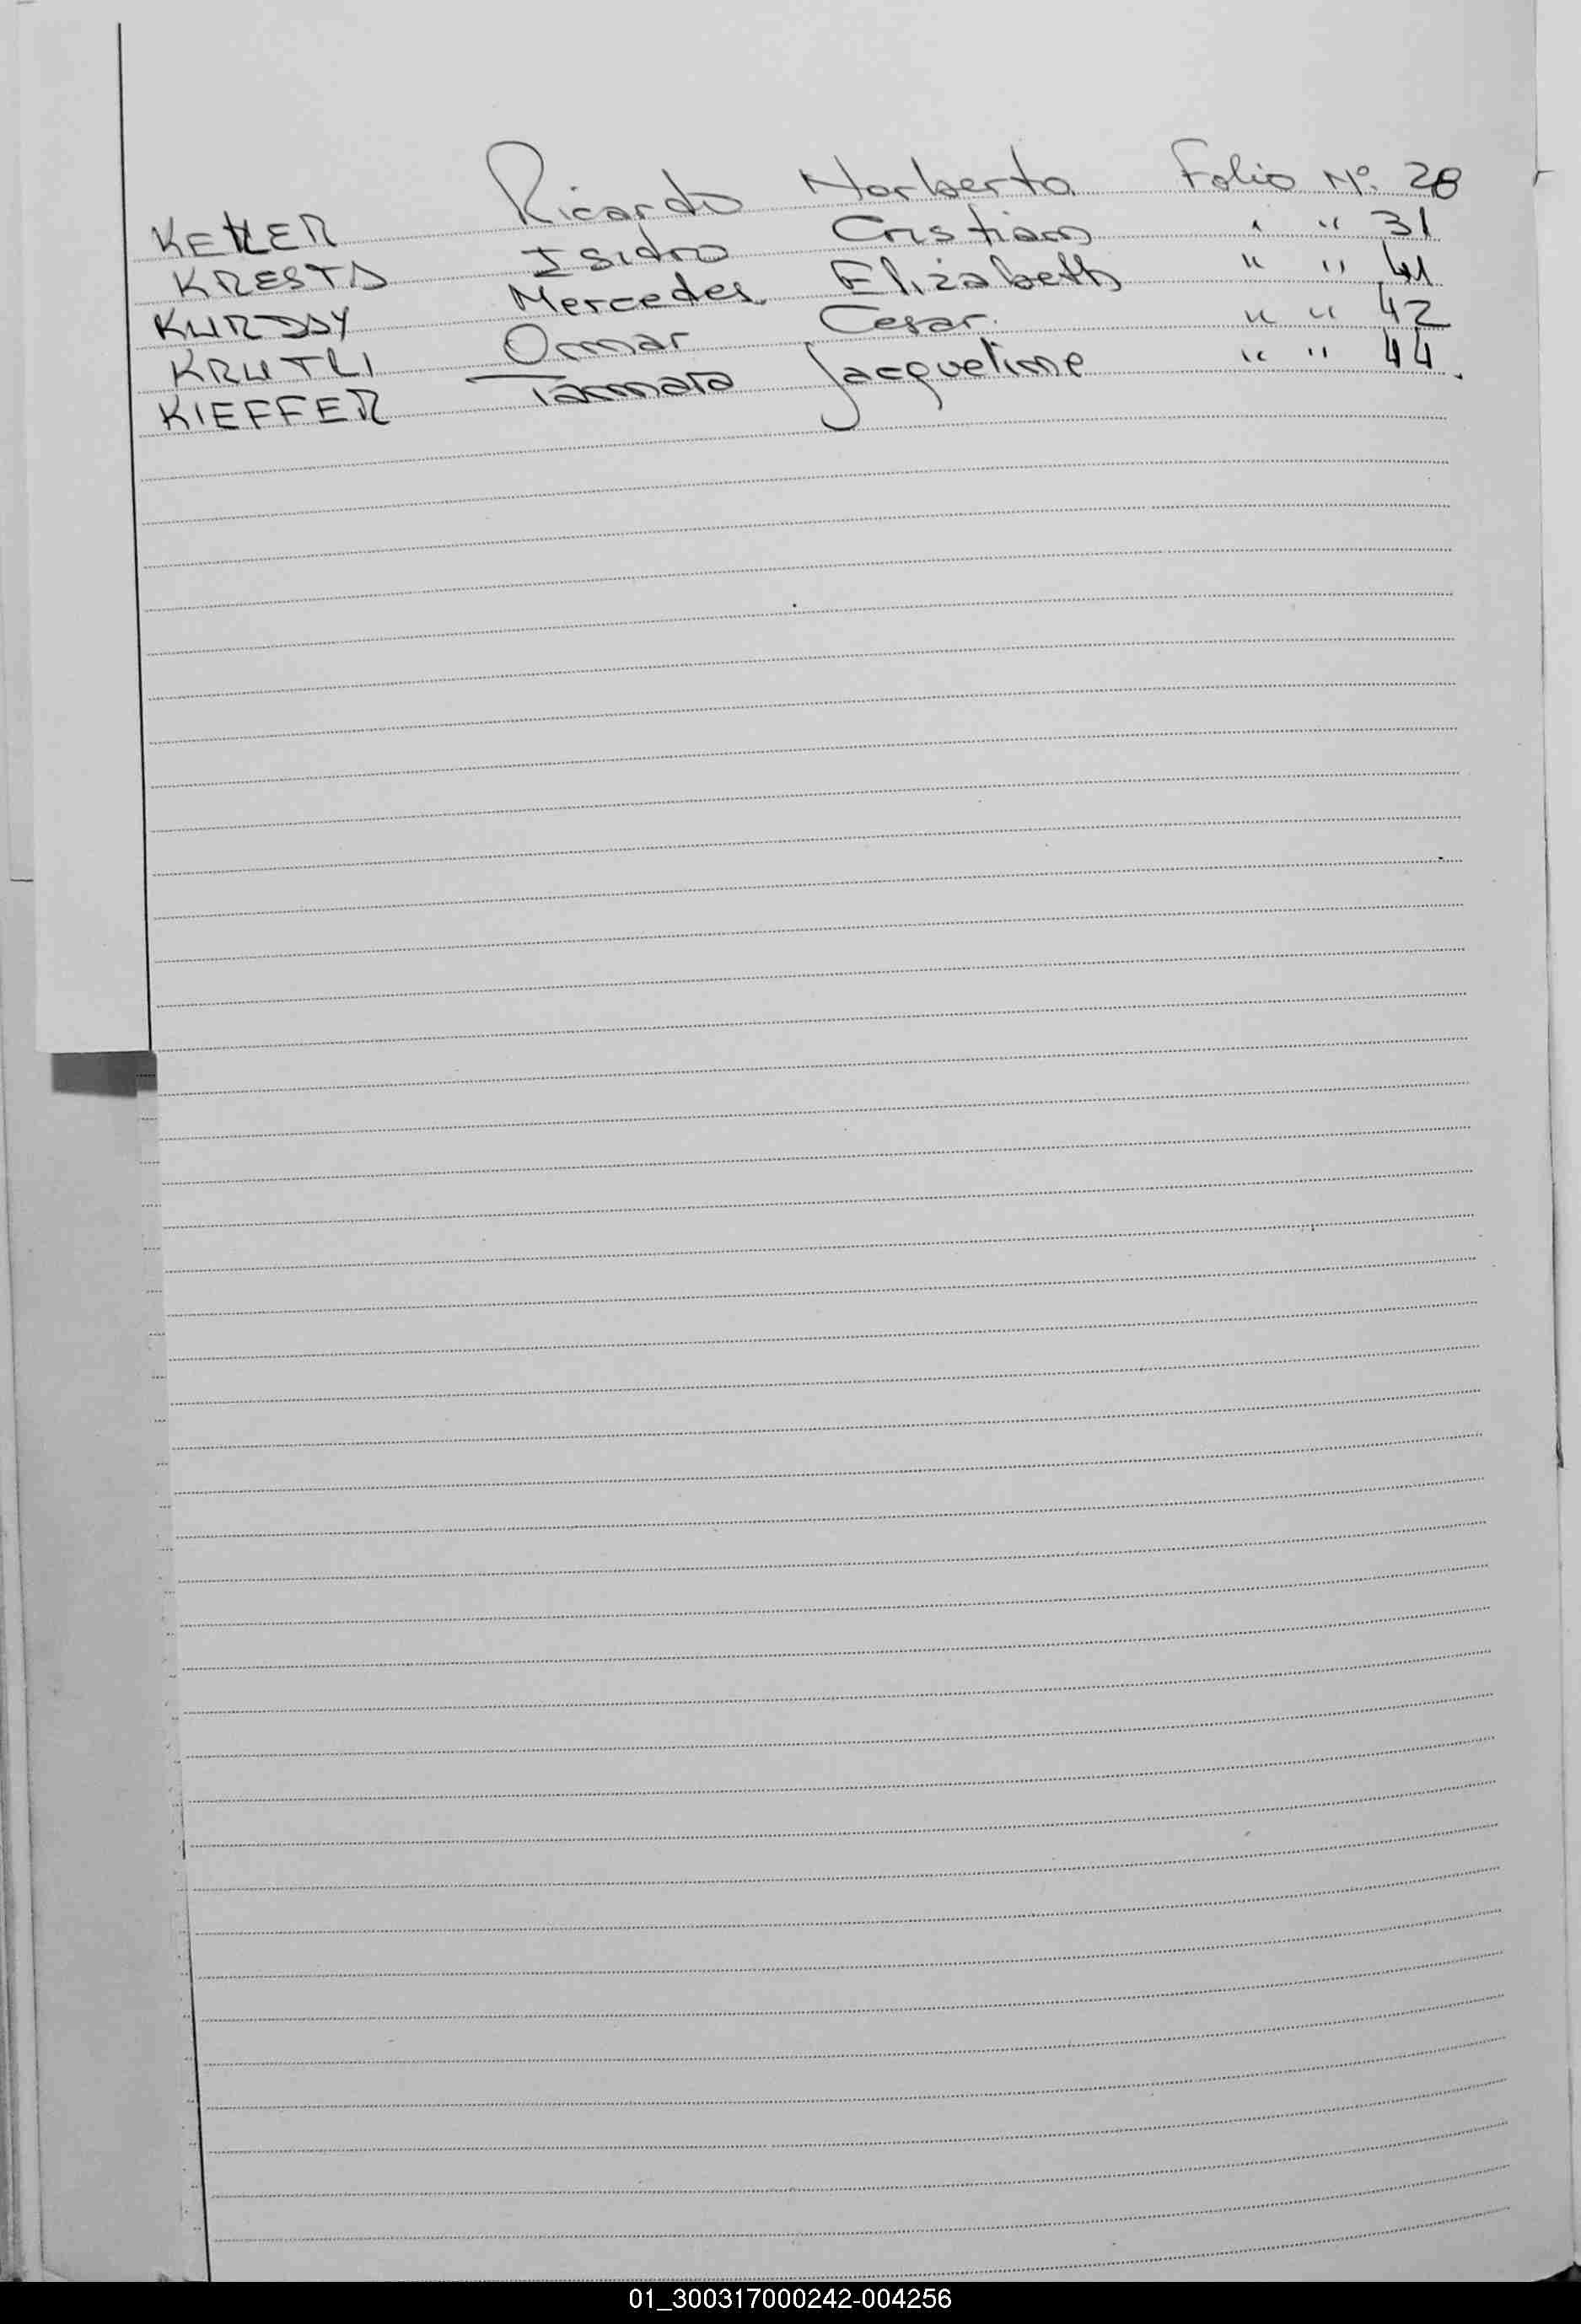 KELLER Ricardo Norberto Folio Nº. 28
KRESTA Isidro Cristian " " 31
KURDAY Mercedes Elizabeth " " 41
KRUTLI Omar Cesar. " " 42
KIEFFER Tamara Jacqueline " " 44.
01_300317000242-004256